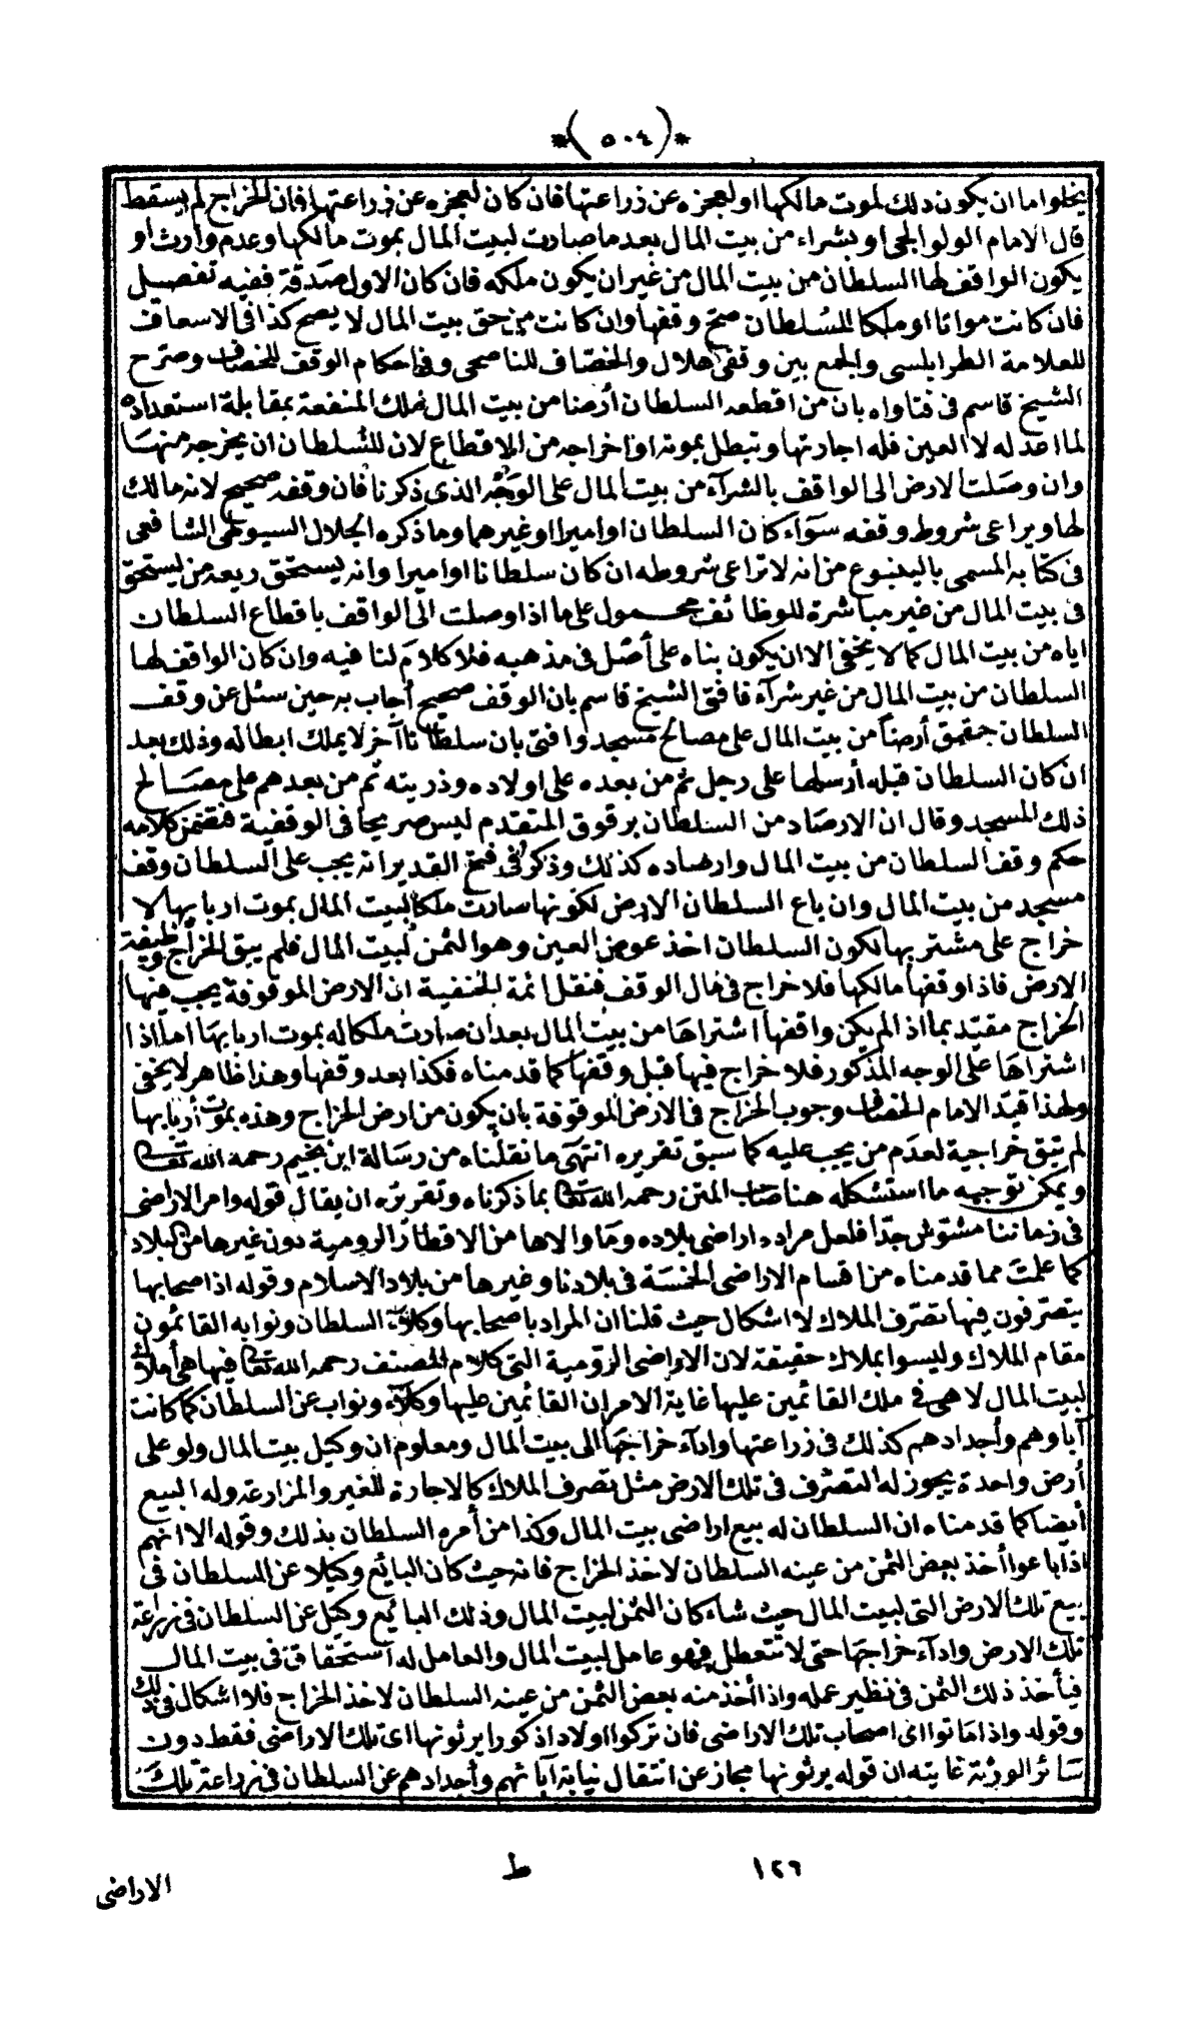 *(٥٠٤)*
يخلو اما ان يكون ذلك لموت مالكها او لعجزه عن زراعتها فان كان لعجزه عن زراعتها فان الخراج لم يسقط
قال الامام الولوالجى او بشراء من بيت المال بعد ما صارت لبيت المال بموت مالكها وعدم وارث او
يكون الواقف لها السلطان من بيت المال من غير ان يكون ملكه فان كان الاول صدقة ففيه تفصيل
فان كانت مواتا او ملكا للسلطان صح وقفها وان كانت من حق بيت المال لا يصح كذا فى الاسعاف
للعلامة الطرابلسى والجمع بين وقفى هلال والخصاف للناصحى وفى احكام الوقف للخصاف وصرح
الشيخ قاسم فى فتاواه بان من اقطعه السلطان أرضا من بيت المال ملك المنفعة بمقابلة استعداده
لما اعد له لا العين فله اجارتها وتبطل بموته او اخراجه من الاقطاع لان للسلطان ان يخرجه منها
وان وصلت الارض الى الواقف بالشرآء من بيت المال على الوجه الذى ذكرنا فان وقفه صحيح لانه مالك
لها ويراعى شروط وقفه سوآء كان السلطان او اميرا او غيرهما وما ذكره الجلال السيوطى الشافعى
فى كتابه المسمى بالينبوع من انه لا تراعى شروطه ان كان سلطانا او اميرا وانه يستحق ريعه من يستحق
فى بيت المال من غير مباشرة للوظائف محمول على ما اذا وصلت الى الواقف باقطاع السلطان
اياه من بيت المال كما لا يخفى الا ان يكون بناه على أصل فى مذهبه فلا كلام لنا فيه وان كان الواقف لها
السلطان من بيت المال من غير شرآء فافتى الشيخ قاسم بان الوقف صحيح أجاب به حين سئل عن وقف
السلطان جقمق أرضا من بيت المال على مصالح مسجد وافتى بان سلطانا آخر لا يملك ابطاله وذلك بعد
ان كان السلطان قبله أرسلها على رجل ثم من بعده على اولاده وذريته ثم من بعدهم على مصالح
ذلك المسجد وقال ان الارصاد من السلطان برقوق المتقدم ليس صريحا فى الوقفية فتضمن كلامه
حكم وقف السلطان من بيت المال وارصاده كذلك وذكر فى فتح القدير انه يجب على السلطان وقف
مسجد من بيت المال وان باع السلطان الارض لكونها صارت ملكا لبيت المال بموت اربابها لا
خراج على مشتريها لكون السلطان اخذ عوض العين وهو الثمن لبيت المال فلم يبق الخراج وظيفة
الارض فاذا وقفها مالكها فلا خراج فى مال الوقف فنقل ائمة الحنفية ان الارض الموقوفة يجب فيها
الخراج مقيد بما اذا لم يكن واقفها اشتراها من بيت المال بعد ان صارت ملكا له بموت اربابها اما اذا
اشتراها على الوجه المذكور فلا خراج فيها قبل وقفها كما قدمناه فكذا بعد وقفها وهذا ظاهر لا يخفى
ولهذا قيد الامام الخصاف وجوب الخراج فى الارض الموقوفة بان يكون من ارض الخراج وهذه بموت أربابها
لم تبق خراجية لعدم من يجب عليه كما سبق تقريره انتهى ما نقلناه من رسالة ابن نجيم رحمه الله تعالى
ويمكن توجيه ما استشكله هنا صاحب المتن رحمه الله تعالى بما ذكرناه وتقريره ان يقال قوله وامر الاراضى
فى زماننا مشوش جدا فلعل مراده اراضى بلاده وما والاها من الاقطار الرومية دون غيرها من البلاد
كما علمت مما قدمناه من اقسام الاراضى الخمسة فى بلادنا وغيرها من بلاد الاسلام وقوله اذ اصحابها
يتصرفون فيها تصرف الملاك لا اشكال حيث قلنا ان المراد باصحابها وكلآء السلطان ونوابه القائمون
مقام الملاك وليسوا بملاك حقيقة لان الاراضى الرومية التى كلام المصنف رحمه الله تعالى فيها هى أملاك
لبيت المال لا هى فى ملك القائمين عليها غاية الامر ان القائمين عليها وكلآء ونواب عن السلطان كما كانت
آباؤهم وأجدادهم كذلك فى زراعتها وادآء خراجها الى بيت المال ومعلوم ان وكيل بيت المال ولو على
أرض واحدة يجوز له التصرف فى تلك الارض مثل تصرف الملاك كالاجارة للغير والمزارعة وله البيع
أيضا كما قدمناه ان السلطان له بيع اراضى بيت المال وكذا من أمره السلطان بذلك وقوله الا انهم
اذا باعوا أخذ بعض الثمن من عينه السلطان لاخذ الخراج فانه حيث كان البائع وكيلا عن السلطان فى
بيع تلك الارض التى لبيت المال حيث شاء كان الثمن لبيت المال وذلك البائع وكيل عن السلطان فى زراعة
تلك الارض وادآء خراجها حتى لا تتعطل فهو عامل لبيت المال والعامل له استحقاق فى بيت المال
فيأخذ ذلك الثمن فى نظير عمله واذا أخذ منه بعض الثمن من عينه السلطان لاخذ الخراج فلا اشكال فى ذلك
وقوله واذا ماتوا اى اصحاب تلك الاراضى فان تركوا اولادا ذكورا يرثونها اى تلك الاراضى فقط دون
سائر الورثة غايته ان قوله يرثونها مجاز عن انتقال نيابة آبائهم وأجدادهم عن السلطان فى زراعة تلك
١٢٦ ط
الاراضى